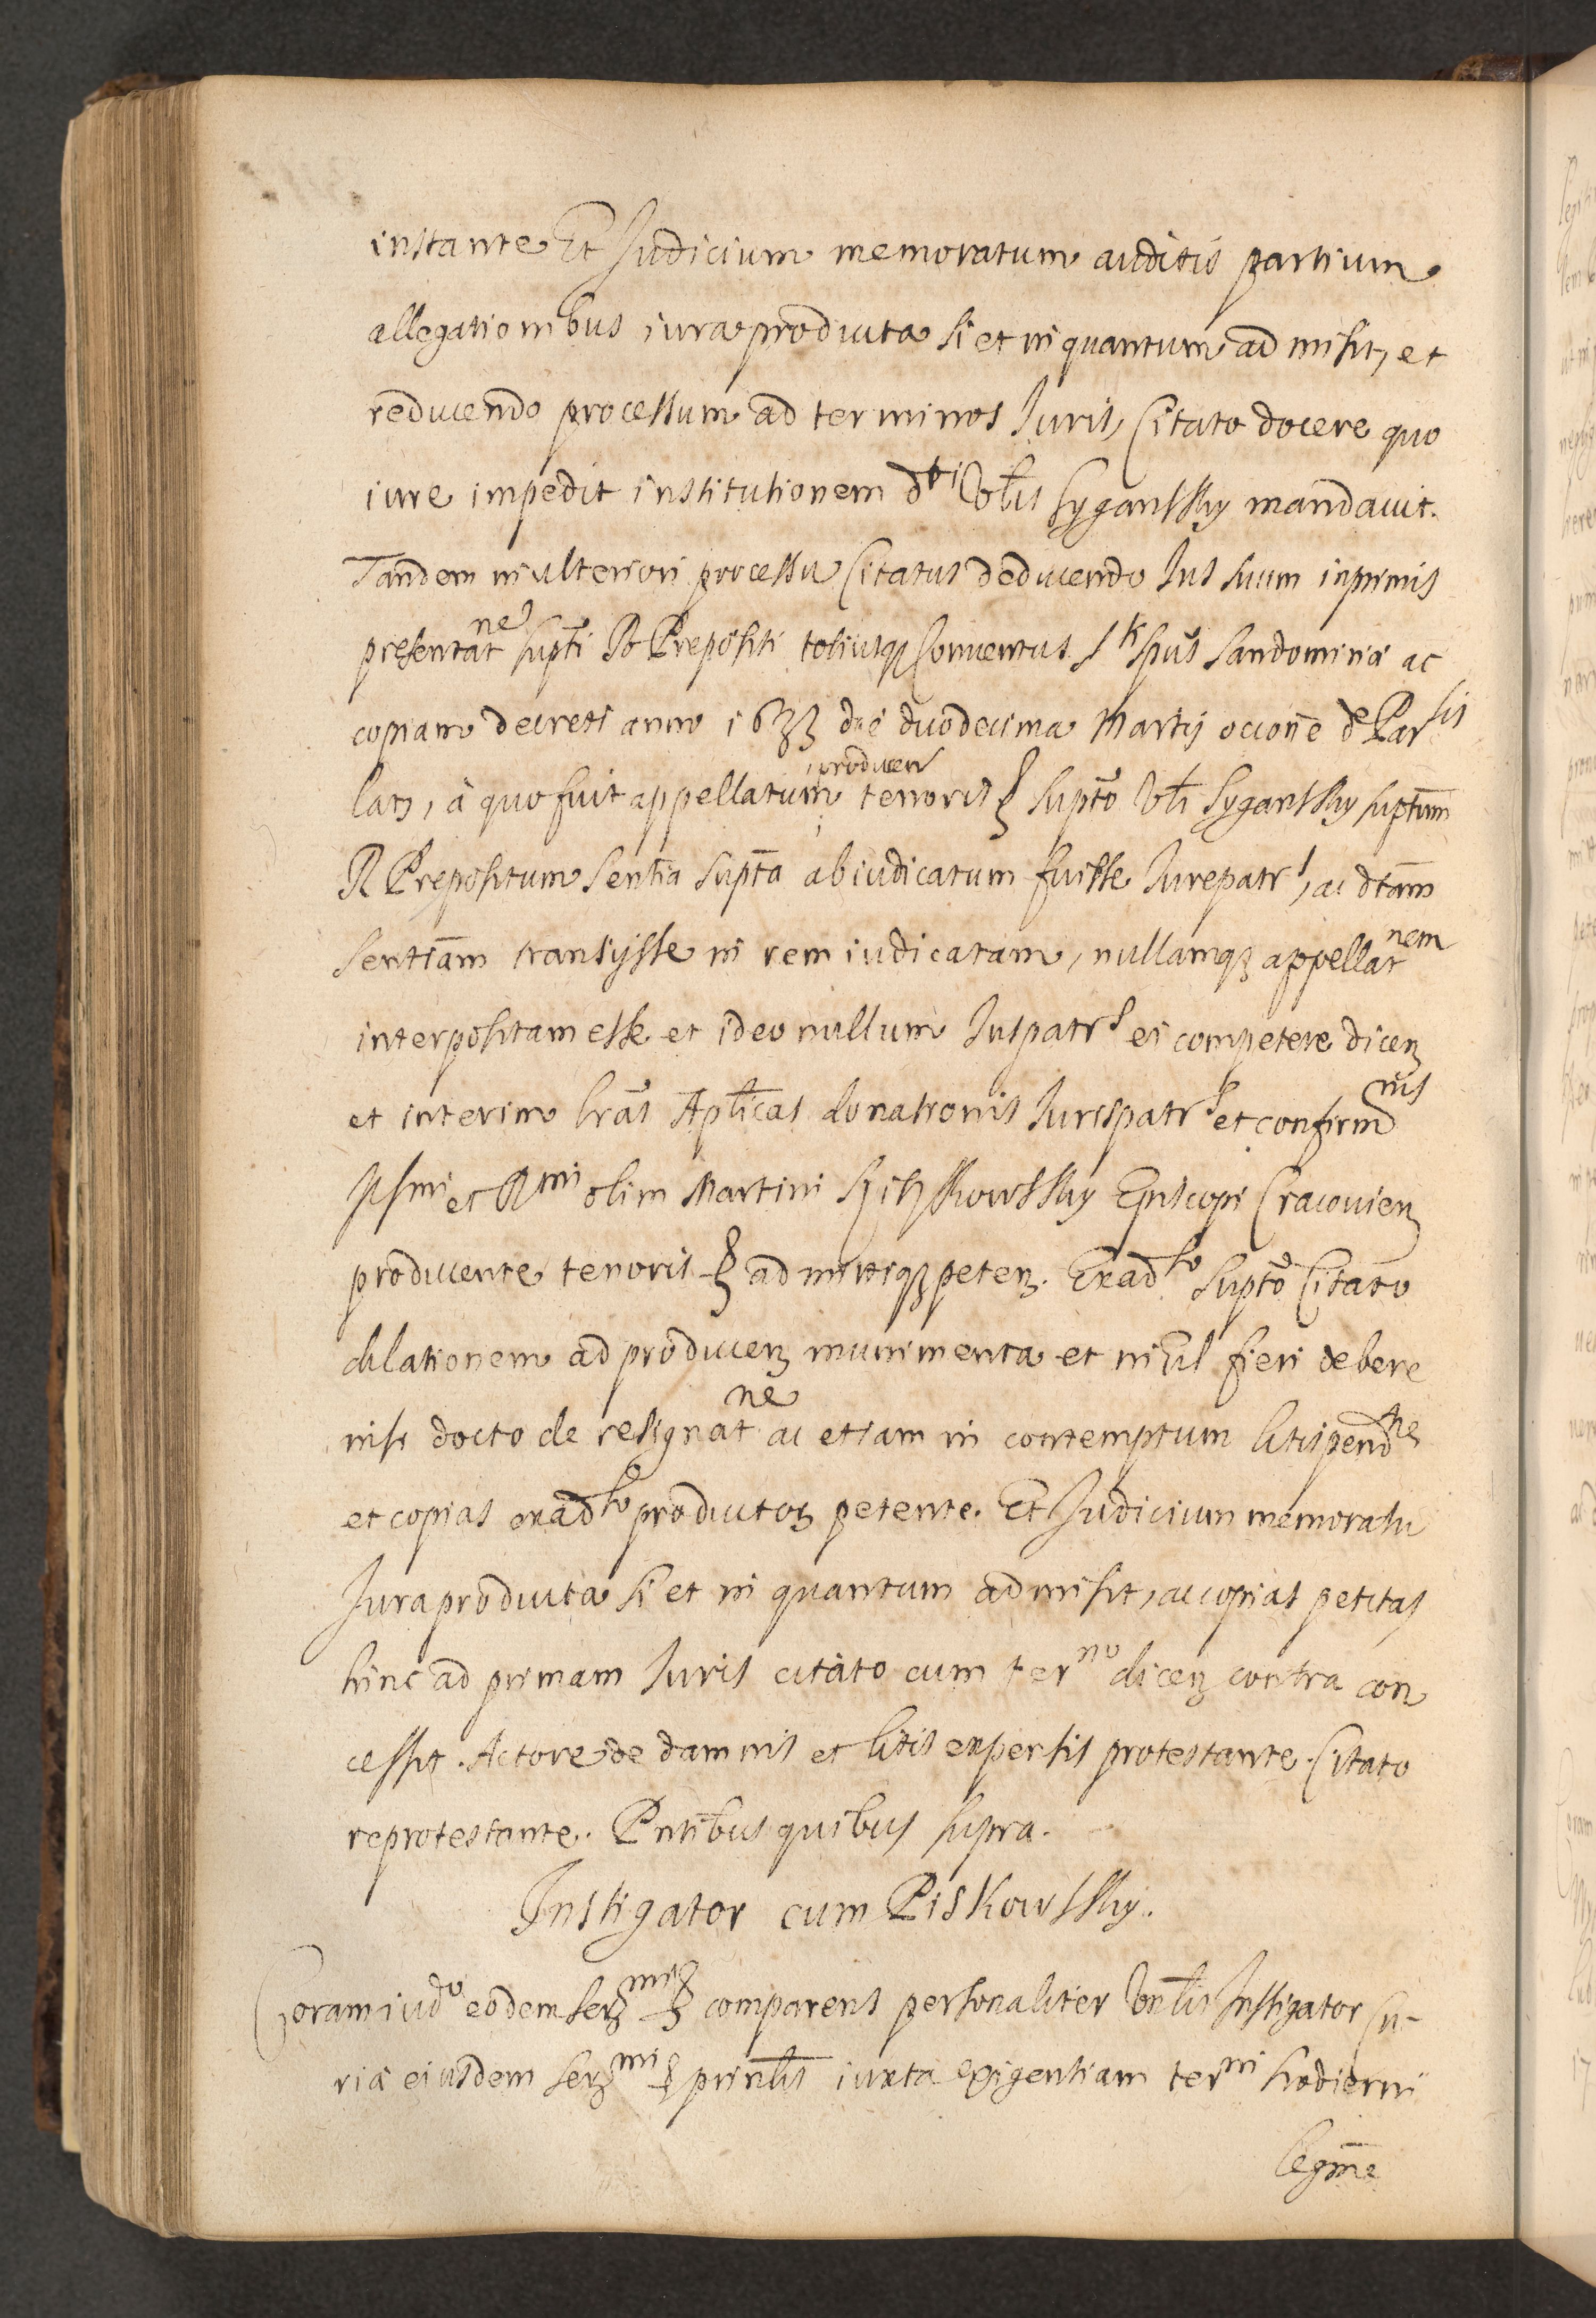 instante Et Judicium memoratum auditis partium
allegationibus iura producta si et in quantum admisit, et
reducendo processum ad terminos Iuris, Citato docere quo
iure impedit institutionem dti Vblis Sygansky mandavit.
Tandem in ulteriori processu Citatus deducendo Ius suum inprimis
presentatne supti R Prepositi totiusq Conventus Sti Spus Sandomiriae ac
copiam decreti anno 1633 die duodecima Martij occone
lats, à quo fuit appellatum producen tenoris supto Vbli Sygansky suptum
R Prepositum sentia supta abiudicatum fuisse Iurepatr, ac dtam
sentiam transijsse in rem iudicatam, nullamq appellatnem
interpositam esse et ideo nullum Iuspatrs ei competere dicen
et interim lras Aplicas donationis Iurispatrs et confirmnis
Illsmi et Rmi olim Martini Szyszkowsky Episcopi Cracovien
producente tenoris admittiq peten. Exadto supto Citato
dilationem ad producen munimenta et nihil fieri debere
nisi docto de resignatne ac etiam in contemptum litispendne
et copias exadto productor petente. Et Judicium memoratu
Iura producta si et in quantum admisit, ac copias petitas
hinc ad primam Iuris citato cum terno dicen contra con
cessit. Actore de damnis et litis expensis protestante. Citato
reprotestante. Pntibus quibus supra.
Instigator cum Piskowsky.
Coram iudo eodem Sermi comparens personaliter Vnblis Instigator Cu-
riae eiusdem Sermi prinblis iuxta exigentiam termi hodierni
legme